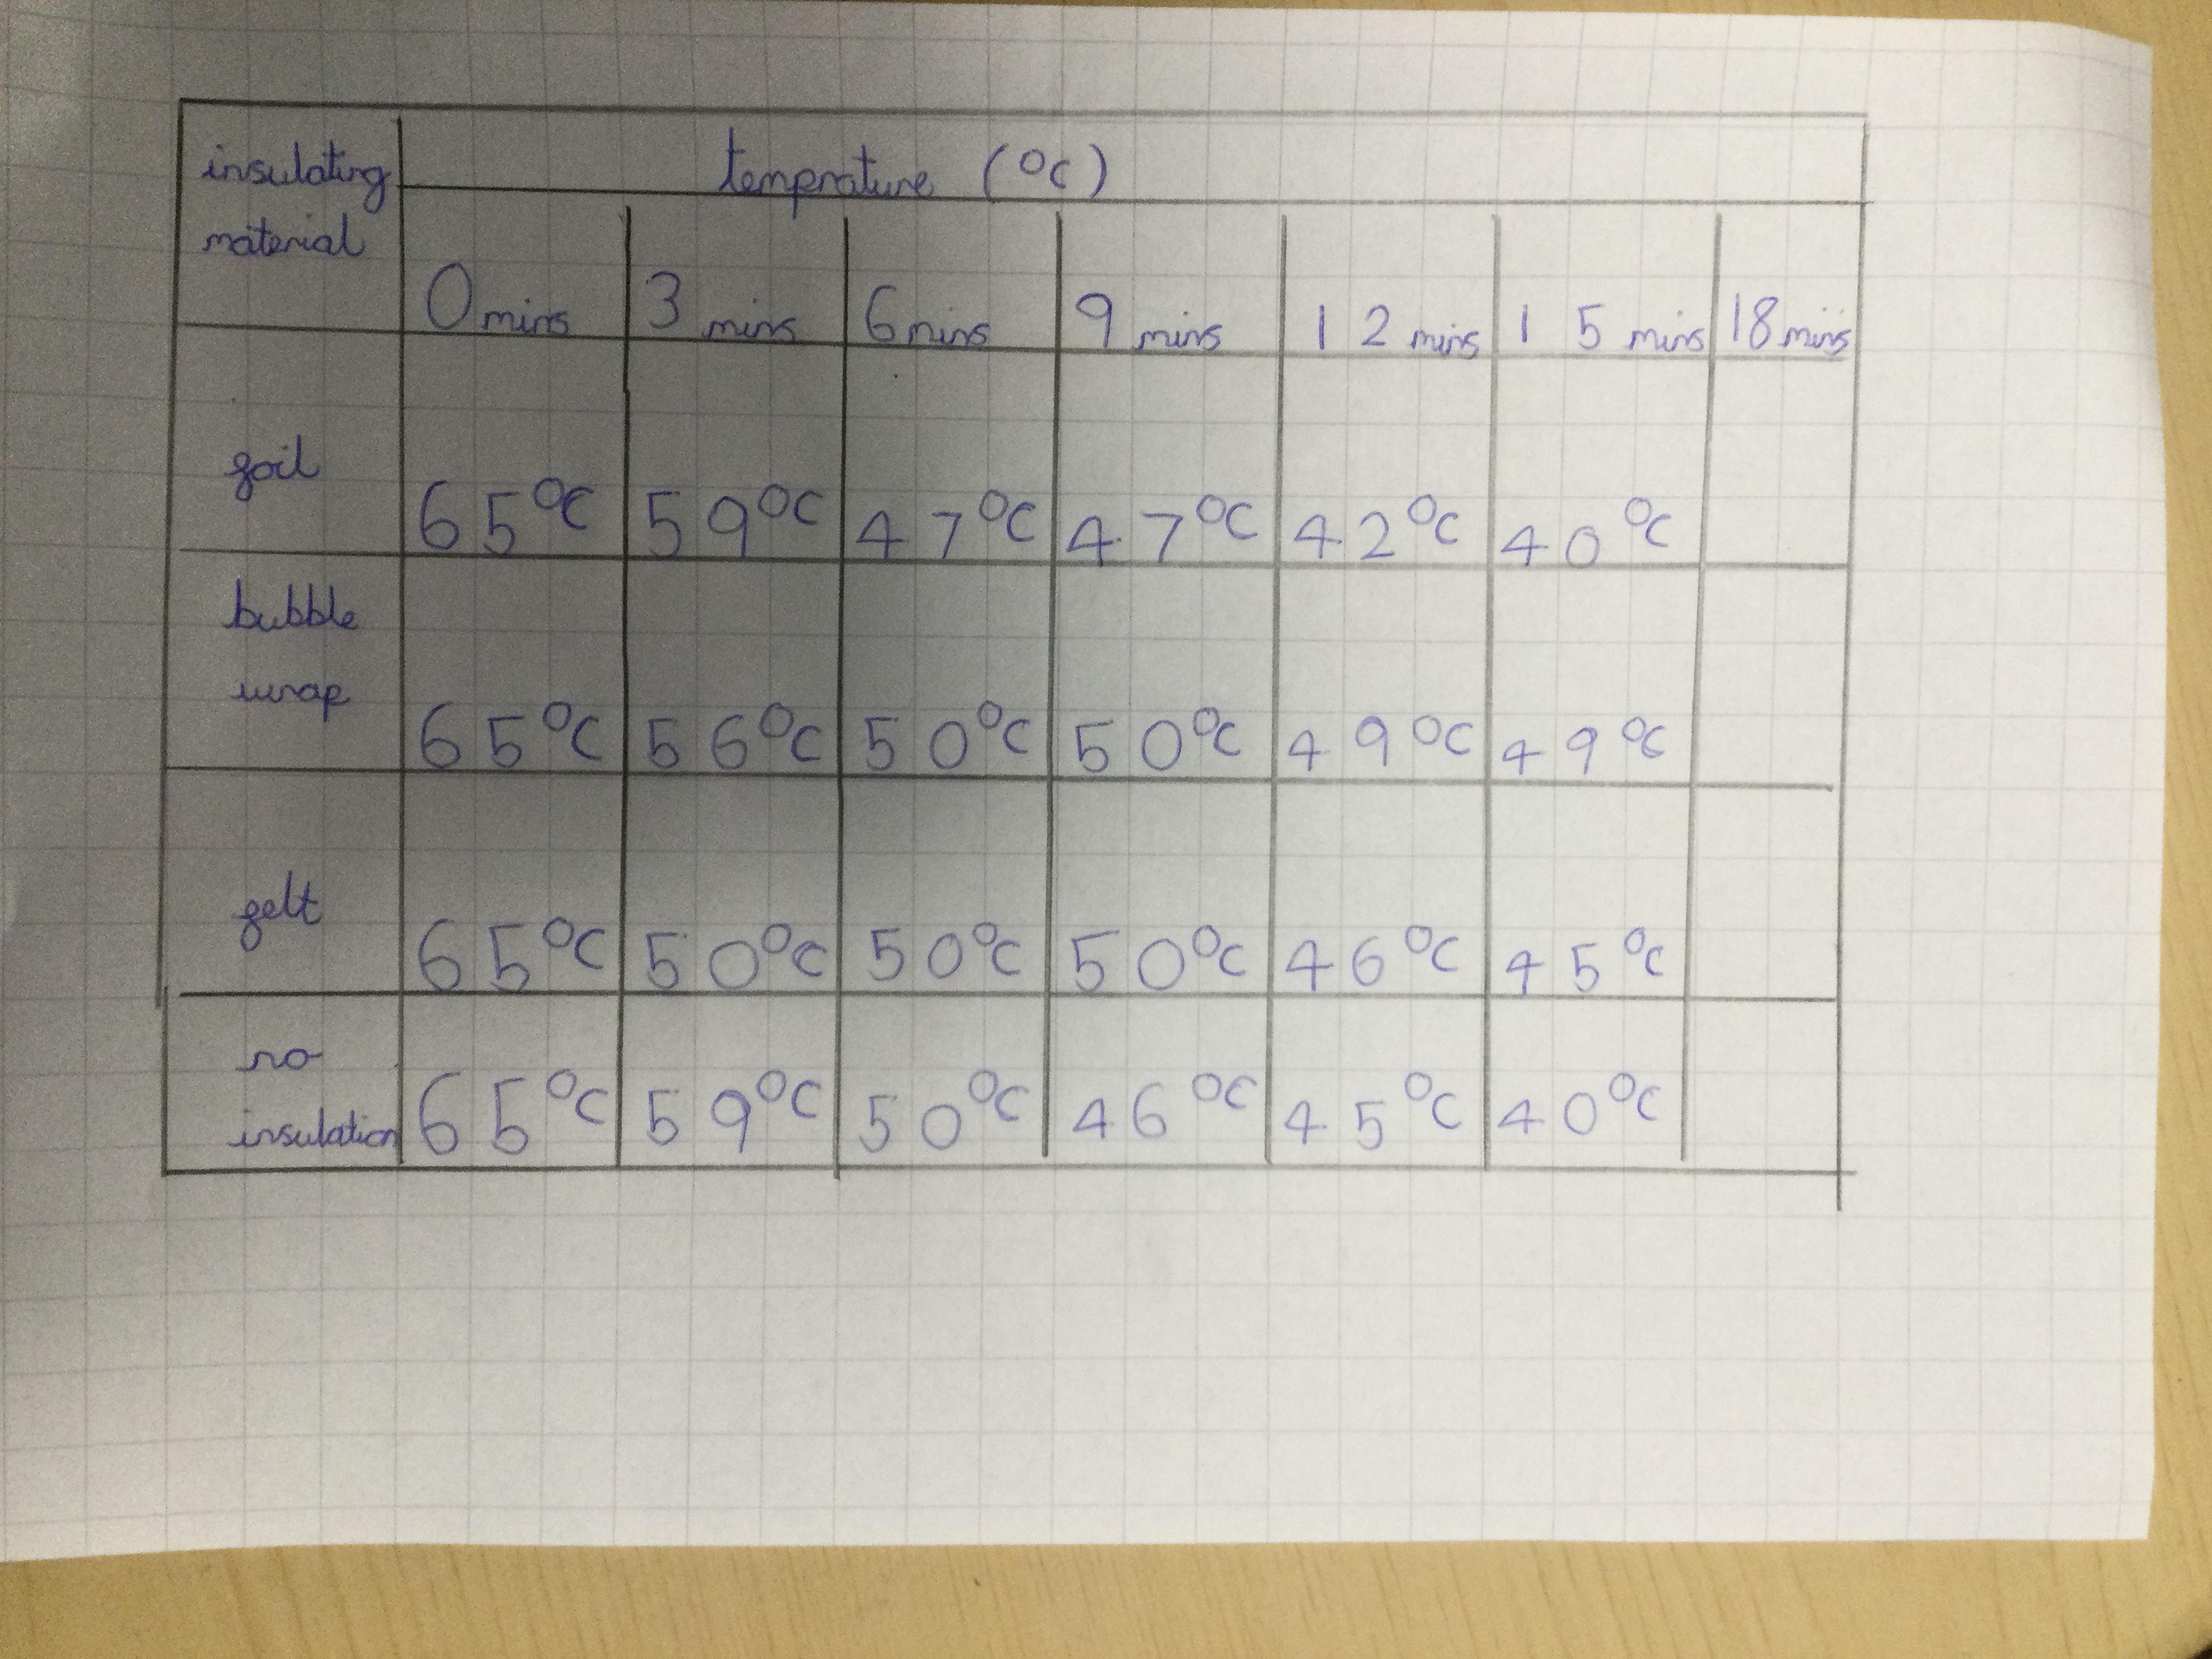 insulating
material
temprature (°C)
0 mins 3 mins 6 mins 9 mins 12 mins 15 mins 18 mins
foil
65°C 59°C 47°C 47°C 42°C 40°C
bubble
wrap
65°C 56°C 50°C 50°C 49°C 49°C
felt
65°C 50°C 50°C 50°C 46°C 45°C
no
insulation
65°C 59°C 50°C 46°C 45°C 40°C